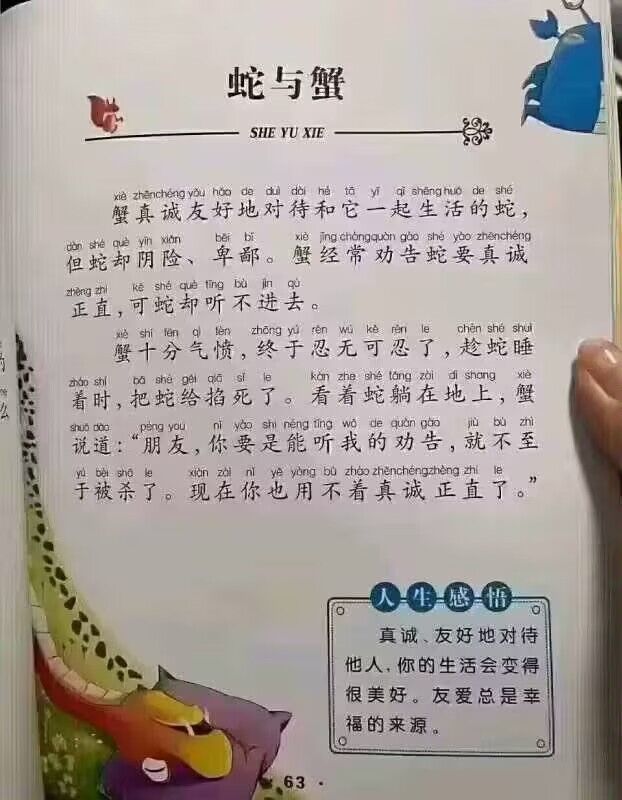 蛇与蟹
SHE YU XIE
xiè zhēnchéng yǒu hǎo de duì dài hé tā yī qǐ shēng huó de shé
蟹真诚友好地对待和它一起生活的蛇，
dàn shé què yīn xiǎn bēi bǐ xiè jīng chángquàn gào shé yào zhēnchéng
但蛇却阴险、卑鄙。蟹经常劝告蛇要真诚
zhèng zhí kě shé què tīng bù jìn qù
正直，可蛇却听不进去。
xiè shí fēn qì fèn zhōng yú rěn wú kě rěn le chèn shé shuì
蟹十分气愤，终于忍无可忍了，趁蛇睡
zháo shí bǎ shé gěi qiā sǐ le kàn zhe shé tǎng zài dì shang xiè
着时，把蛇给掐死了。看着蛇躺在地上，蟹
shuō dào péng you nǐ yào shi néng tīng wǒ de quàn gào jiù bù zhì
说道：“朋友，你要是能听我的劝告，就不至
yú bèi shā le xiàn zài nǐ yě yòng bù zháo zhēnchéngzhèng zhí le
于被杀了。现在你也用不着真诚正直了。”
人生感悟
真诚、友好地对待
他人，你的生活会变得
很美好。友爱总是幸
福的来源。
63
么